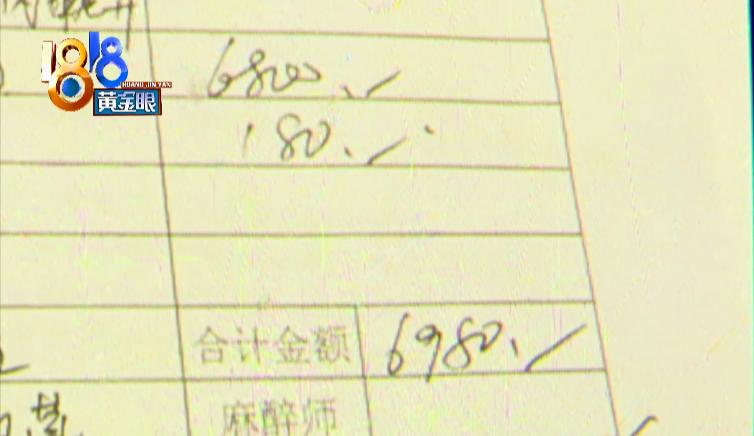 6800.
1818
HUANG JIN YAN
黄金眼
180.
合计金额 6980.
麻醉师